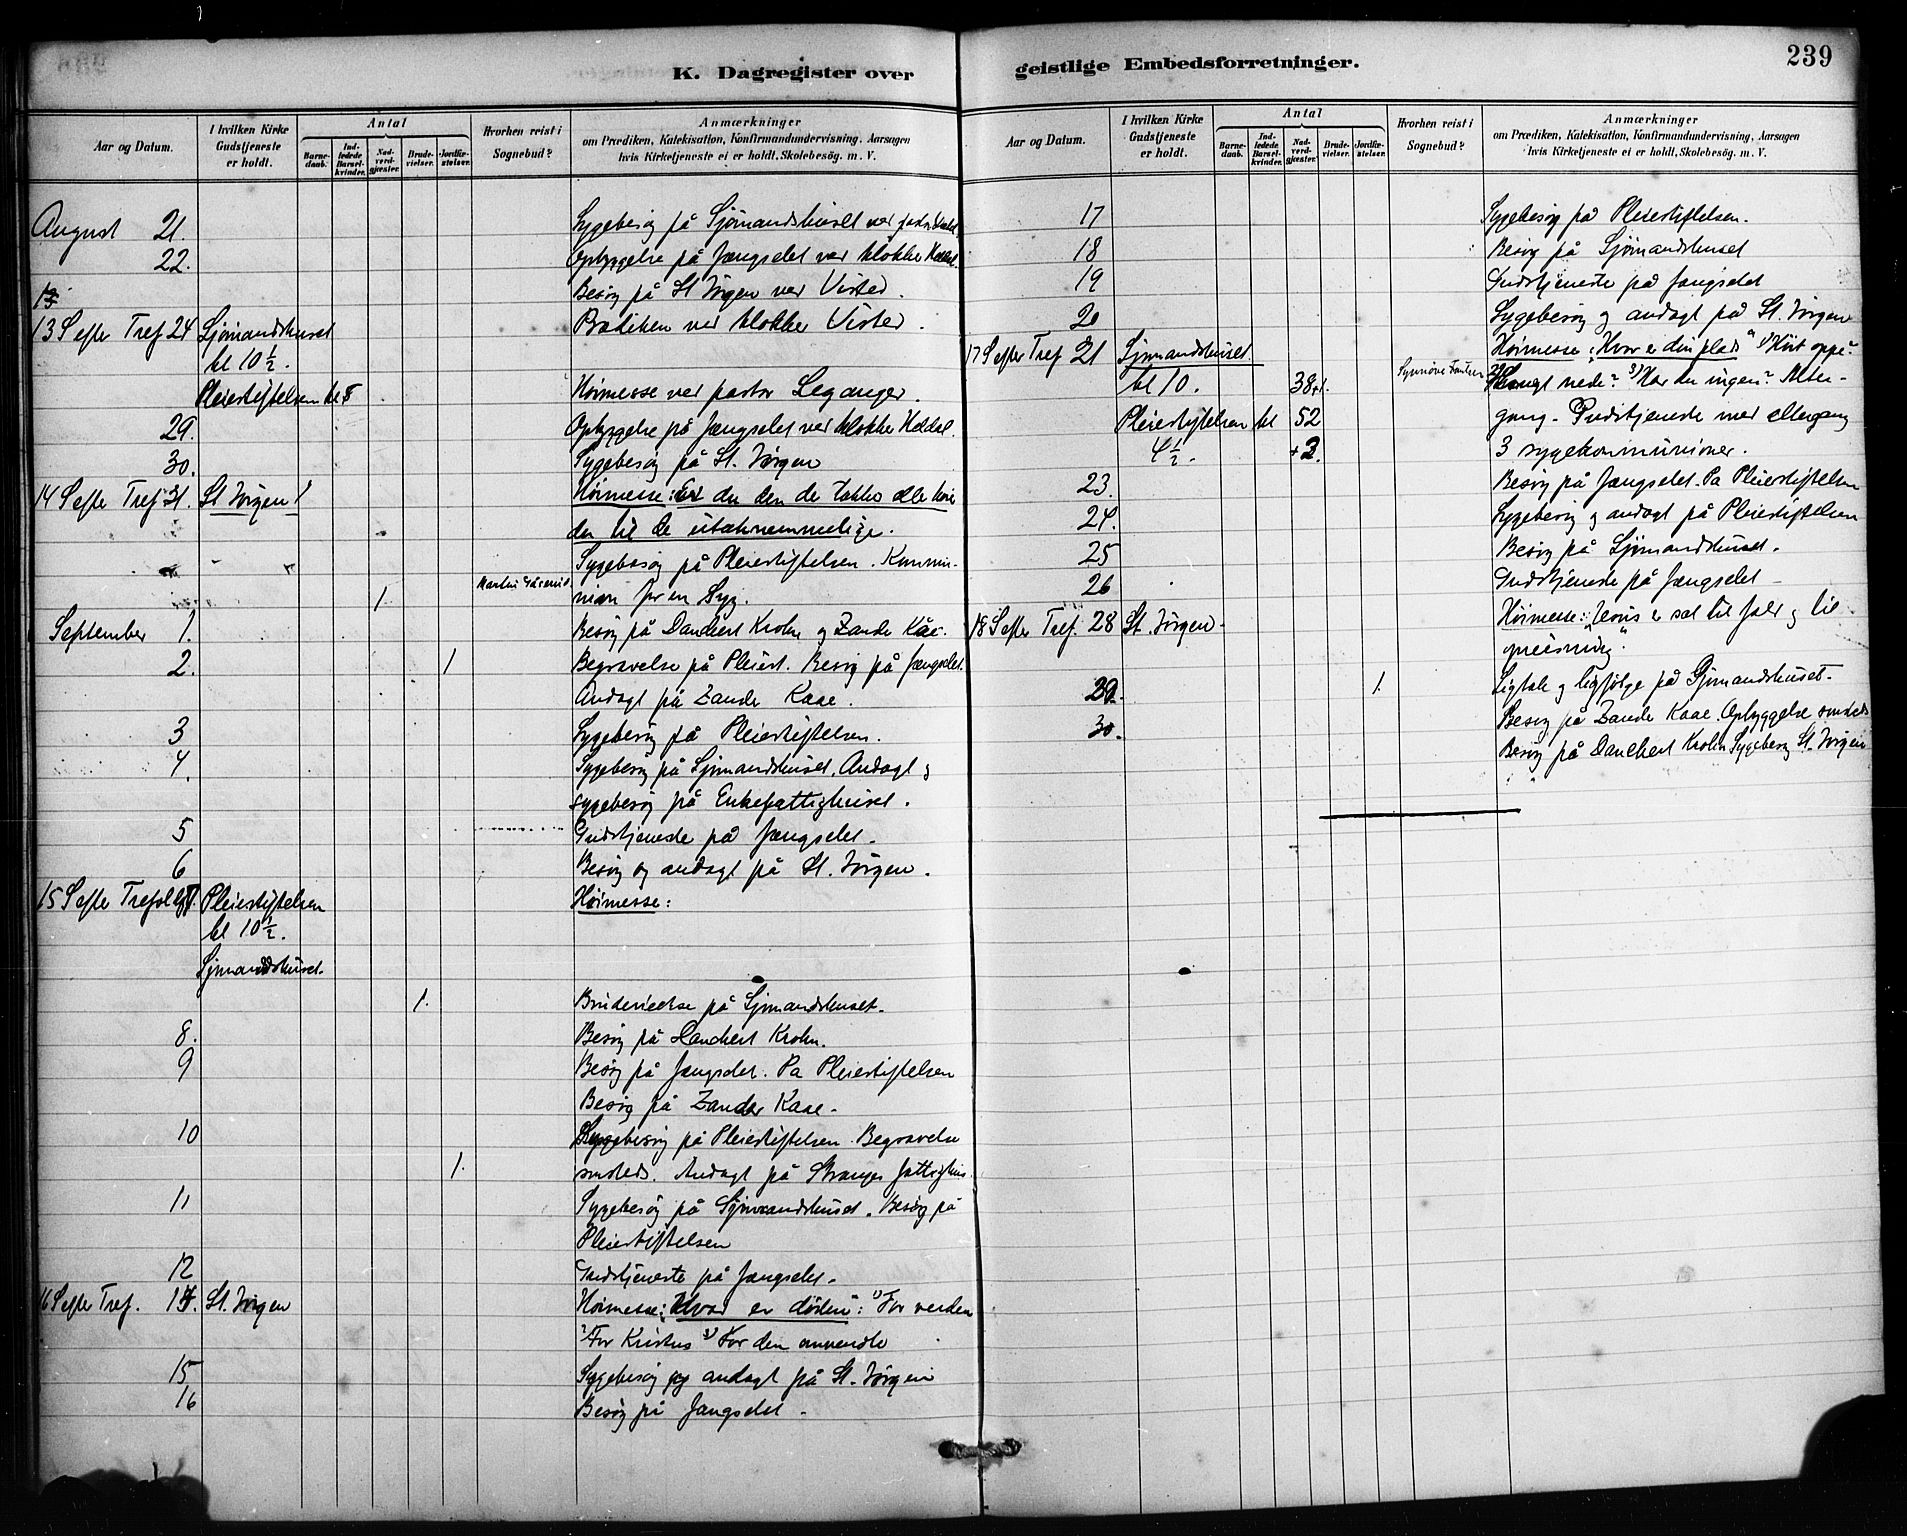 239
K. Dagregister over geistlige Embedsforretninger.
Aar og Datum.
I hvilken Kirke Gudstjeneste er holdt.
Antal
Barnedaab.
Indledede Barselkvinder.
Nadverdgjæster.
Brudevielser.
Jordfæstelser.
Hvorhen reist i Sognebud?
Anmærkninger
om Prædiken, Katekisation, Konfirmandundervisning, Aarsagen
hvis Kirketjeneste ei er holdt, Skolebesög. m. V.
August 21. Sygebesög på Sjömandshuset ved
22. Opbyggelse på fængselet ved klokker Heldal.
Besög på St Jörgen ved Visted.
13 S efter Tref 24 Sjömandshuset Prædiken ved klokker Visted.
kl 10 1/2.
Pleiestiftelsen kl 5 Höimesse ved pastor Leganger.
29. Opbyggelse på fængselet ved klokker Heldal.
30. Sygebesög på St. Jörgen
14 S efter Tref 31. St Jörgen Höimesse: Er du den de takke eller hörer
du til de utaknemmelige.
Sygebesög på Pleiestiftelsen. Kommu-
1 nion for en Syg.
September 1. Besög på Danckert Krohn og Zander Kåe.
2. 1 Begravelse på Pleiest. Besög på fængselet.
Andagt på Zander Kaae.
3 Sygebesög på Pleiestiftelsen.
4. Sygebesög på Sjömandshuset. Andagt og
sygebesög på Enkefattighuset.
5 Gudstjeneste på fængselet.
6 Besög og andagt på St. Jörgen.
15 S efter Trefold 7. Pleiestiftelsen Höimesse:
kl 10 1/2.
Sjömandshuset.
1. Brudevielse på Sjömandshuset.
8. Besög på Danckert Krohn.
9 Besög på fængselet. Pa Pleiestiftelsen
Besög på Zander Kaae.
10 Sygebesög på Pleiestiftelsen. Begravelse
1. smsteds. Andagt på Stranges fattighus.
11 Sygebesög på Sjömandshuset. Besög på
Pleiestiftelsen
12 Gudstjeneste på fængselet.
16 S efter Tref. 14. St. Jörgen Höimesse: Hvad er döden": 1) For verden
2) For Kristus 3) For den omvendte
15 Sygebesög og andagt på St. Jörgen
16 Besög på fængselet.
Aar og Datum.
I hvilken Kirke Gudstjeneste er holdt.
Antal
Barnedaab.
Indledede Barselkvinder.
Nadverdgjæster.
Brudevielser.
Jordfæstelser.
Hvorhen reist i Sognebud?
Anmærkninger
om Prædiken, Katekisation, Konfirmandundervisning, Aarsagen
hvis Kirketjeneste ei er holdt, Skolebesög. m. V.
17 Sygebesög på Pleiestiftelsen.
18 Besög på Sjömandshuset
19 Gudstjeneste på fængselet
20 Sygebesög og andagt på St. Jörgen
17 S efter Tref 21 Sjömandshuset. Höimesse: "Hvor er din plads" 1) Höit oppe?
kl 10. 38+1. Langt nede? 3) Har du ingen? Alter-
Pleiestiftelsen kl 52 gang. Gudstjeneste med altergang
4 1/2. +2. 3 sygekommunioner.
23. Besög på fængselet. Pa Pleiestiftelsen
24. Sygebesög og andagt på Pleiestiftelsen
25 Besög på Sjömandshuset.
26 Gudstjeneste på fængselet
18 S efter Tref. 28 St. Jörgen. Höimesse: "Jesus er sat til fald og til
opreisning".
29. 1. Ligtale og ligfölge på Sjömandshuset.
30. Besög på Zander Kaae. Opbyggelse smsteds
Besög på Danckert Krohn Sygebesög St. Jörgen